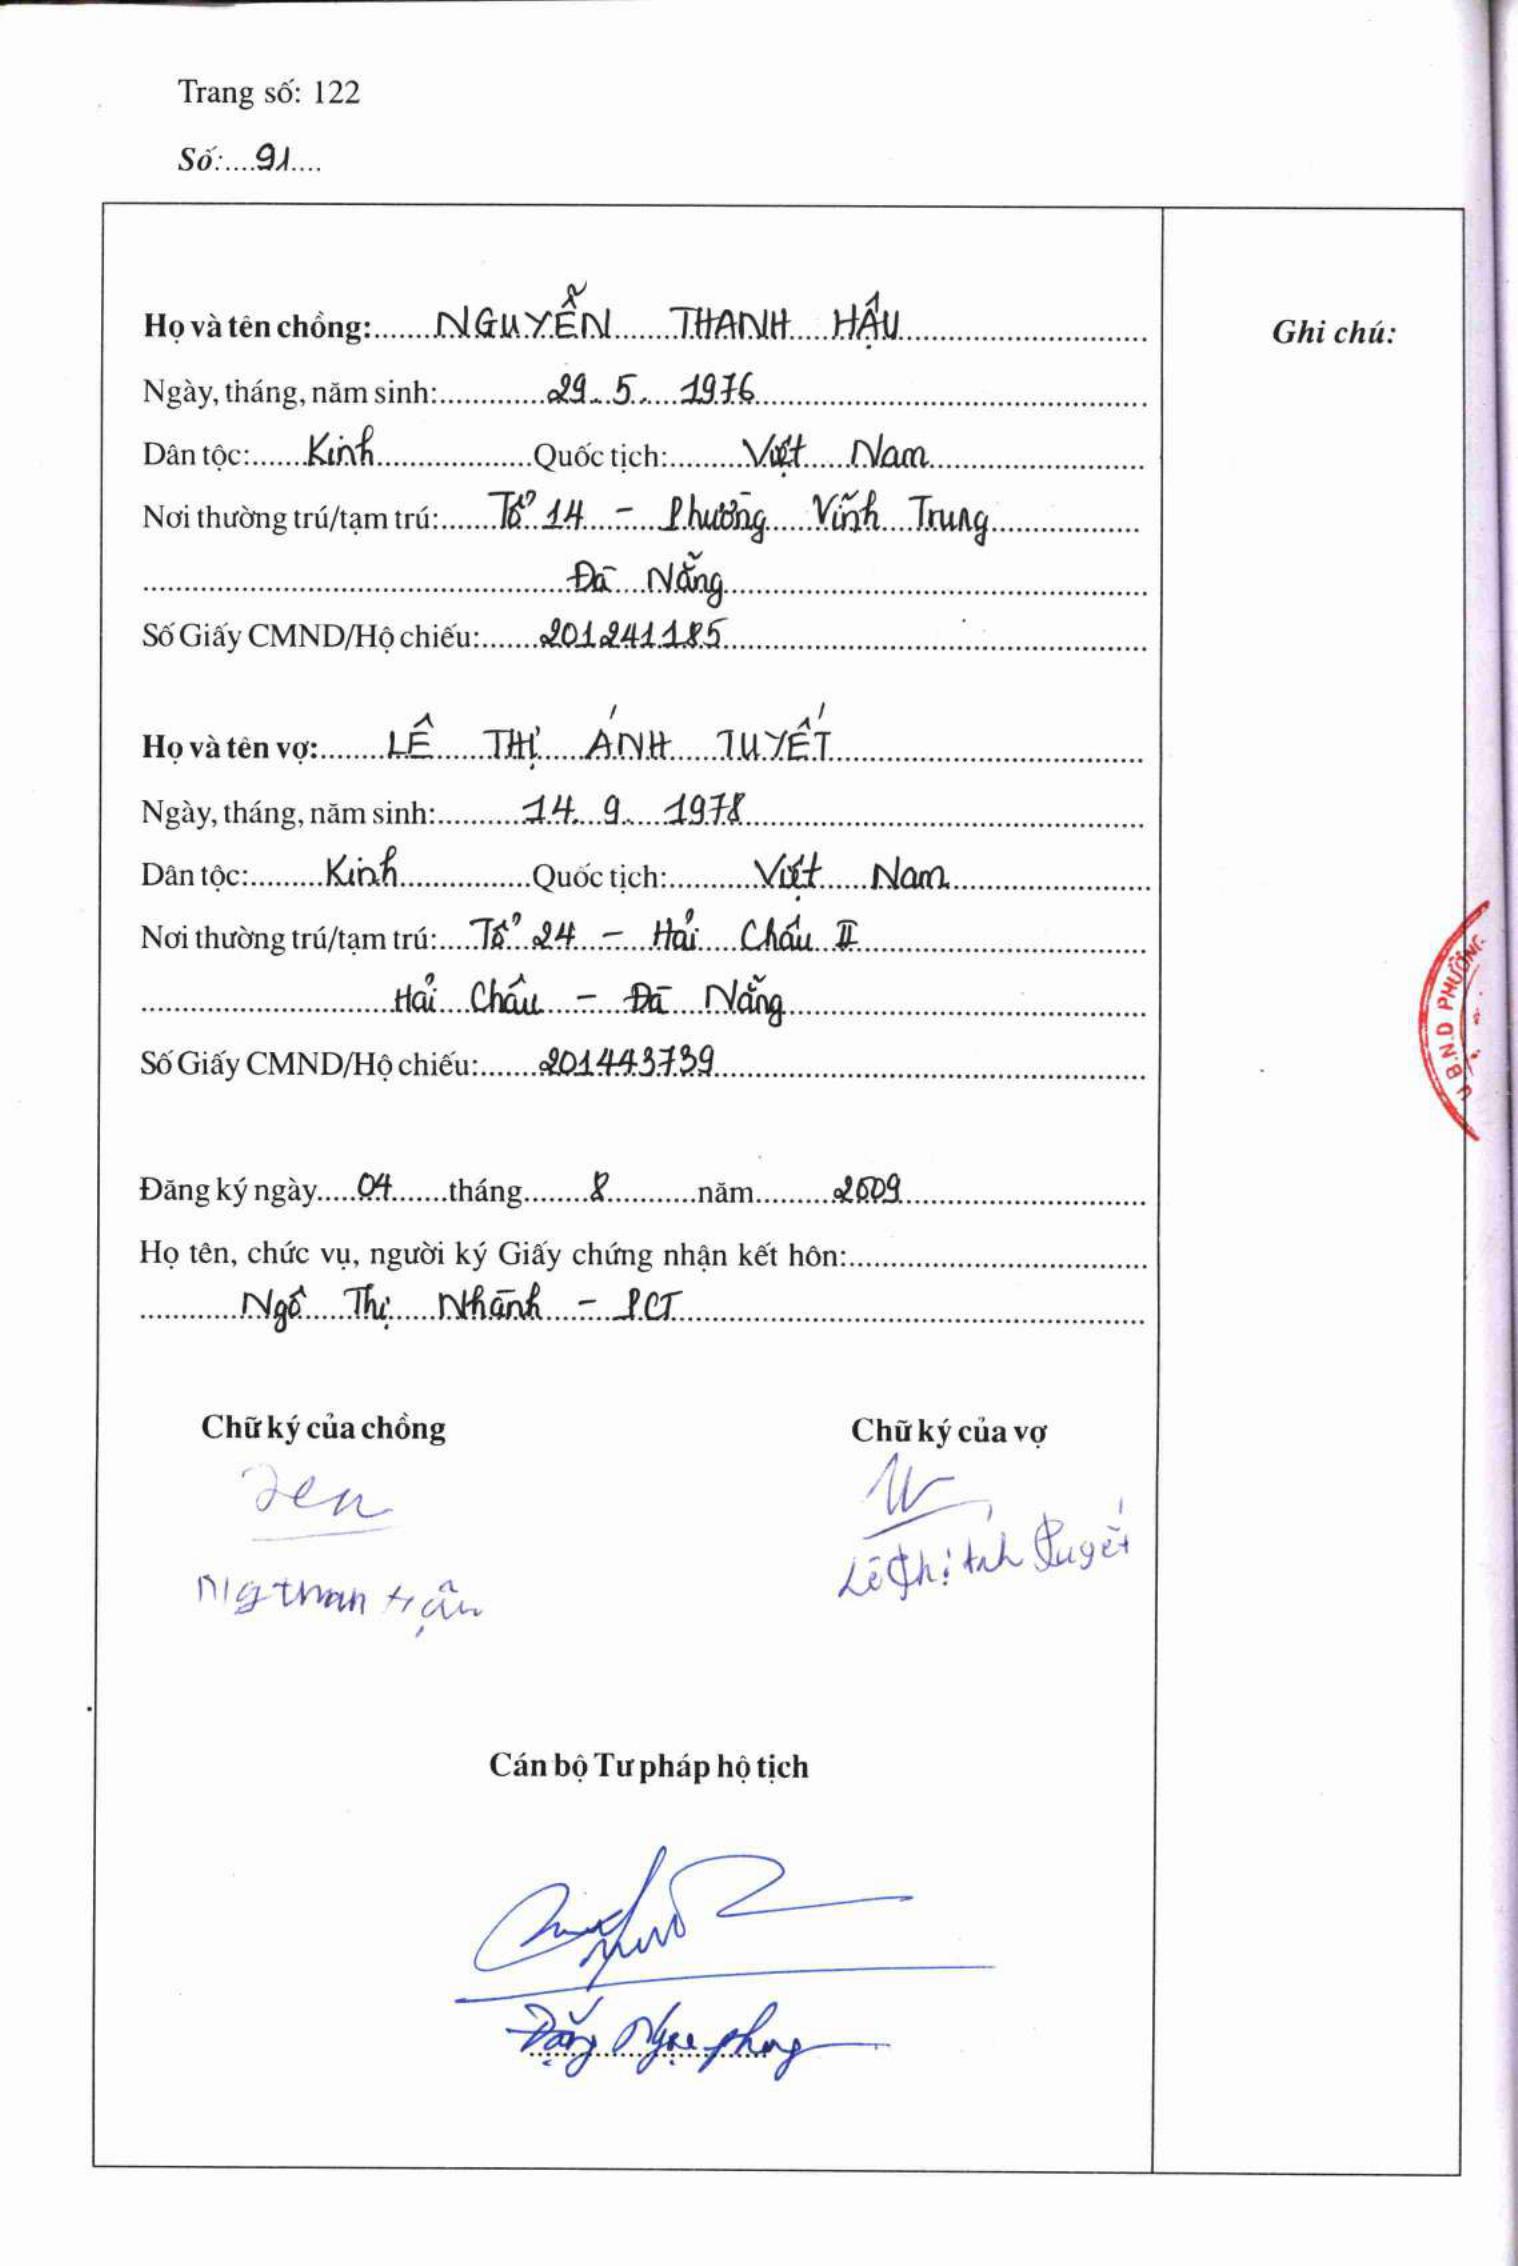 Trang số: 122
Số:....91....
Họ và tên chồng: NGUYỄN THANH HẬU
Ghi chú:
Ngày, tháng, năm sinh: 29. 5. 1976
Dân tộc: Kinh Quốc tịch: Việt Nam
Nơi thường trú/tạm trú: Tổ 14 - Phường Vĩnh Trung
Đà Nẵng
Số Giấy CMND/Hộ chiếu: 201241185
Họ và tên vợ: LÊ THỊ ÁNH TUYẾT
Ngày, tháng, năm sinh: 14. 9. 1978
Dân tộc: Kinh Quốc tịch: Việt Nam
Nơi thường trú/tạm trú: Tổ 24 - Hải Châu II
Hải Châu - Đà Nẵng
Số Giấy CMND/Hộ chiếu: 201443739
U.B.N.D PHƯỜNG
Đăng ký ngày 04 tháng 8 năm 2009
Họ tên, chức vụ, người ký Giấy chứng nhận kết hôn:
Ngô Thị Nhành - PCT
Chữ ký của chồng Chữ ký của vợ
Lê Thị Ánh Tuyết
Cán bộ Tư pháp hộ tịch
Đặng Ngọc Phong